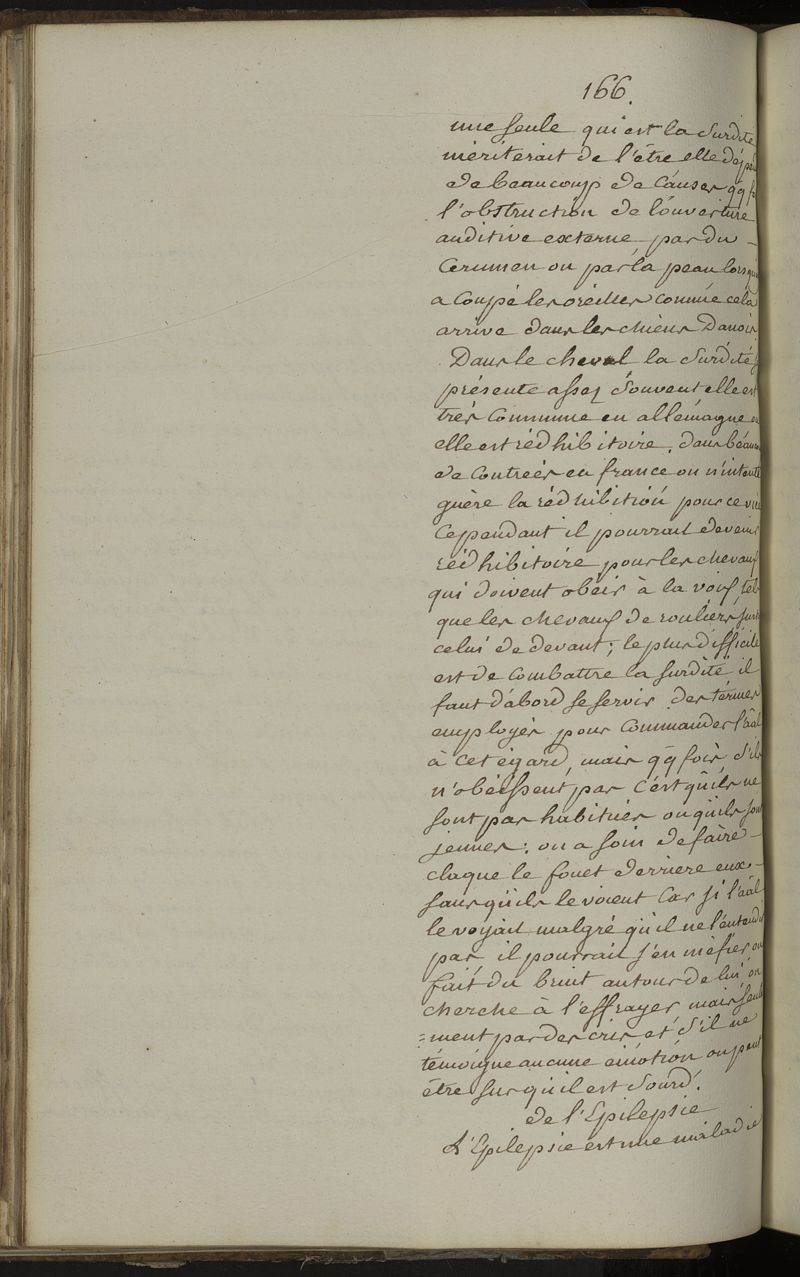 166.
une seule qui est la surdité
mériterait de l'être elle dépe
de beaucoup de causes qq f
l'obstruction de l'ouverture
auditive externe, par du -
Cerumen ou par la peau lorsqu
a coupé les oreilles comme cela
arrive dans les chiens Danois
Dans le cheval la surdité
présente assez souvent elle est
très commune en allemagne
elle est rédhibitoire, dans beauc
de contrées en france on n'intente
guère la rédhibition pour ce vic
Cependant il pourrait devenir
rédhibitoire pour les chevaux
qui doivent obéir à la voix, tels
que les chevaux de rouliers, surt
celui de devant; le plus difficile
est de combattre la surdité il
faut d'abord se servir des termes
employés pour commander l'aâl
à cet égard, mais qq fois s'ils
n'obéissent pas c'est qu'ils ne
sont pas habitués ou qu'ils son
jeunes: on a soin de faire -
claque le fouet derriere eux -
sans qu'ils le voient Car si l'aâl
le voyait malgré qu'il ne l'entendit
pas il pourrait s'en méfier, on
fait du bruit autour de lui on
cherche à l'effrayer, mais seule
=ment par des cris et s'il ne
témoigne aucune émotion on peut
être sur qu'il est sourd.
de l'Epilepsie
L'Epilepsie est une maladie